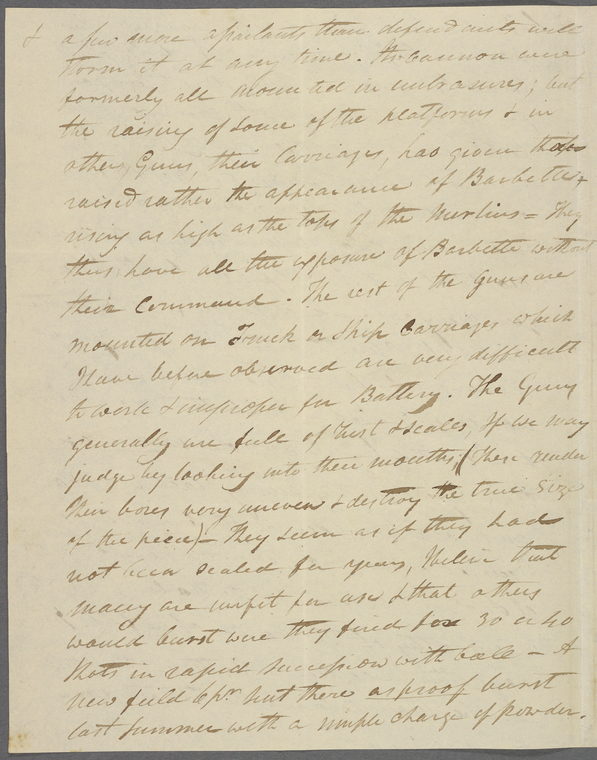 & a few more assailants than defendants will
storm it at any time. The cannon were
formerly all mounted in embrasures; but
the raising of some of the platforms & in
others, Guns, their Carriages, has given those
raised rather the appearance of Barbette,
rising as high as the tops of the Merlins = They
thus have all the exposure of Barbette without
their Command. The rest of the Guns are
mounted on Truck or Ship Carriages which
I have before observed are very difficult
to work & improper for Battery. The Guns
generally are full of rust & scales, If we may
judge by looking into their mouths, (These render
their bores very uneven & destroy the true size
of the piece) - They seem as if they had
not been scaled for years, I believe that
many are unfit for use & that others
would burst were they fired for 30 or 40
shots in rapid succession with ball - A
new field 6 pr sent there as proof burst
last summer with a simple charge of powder.